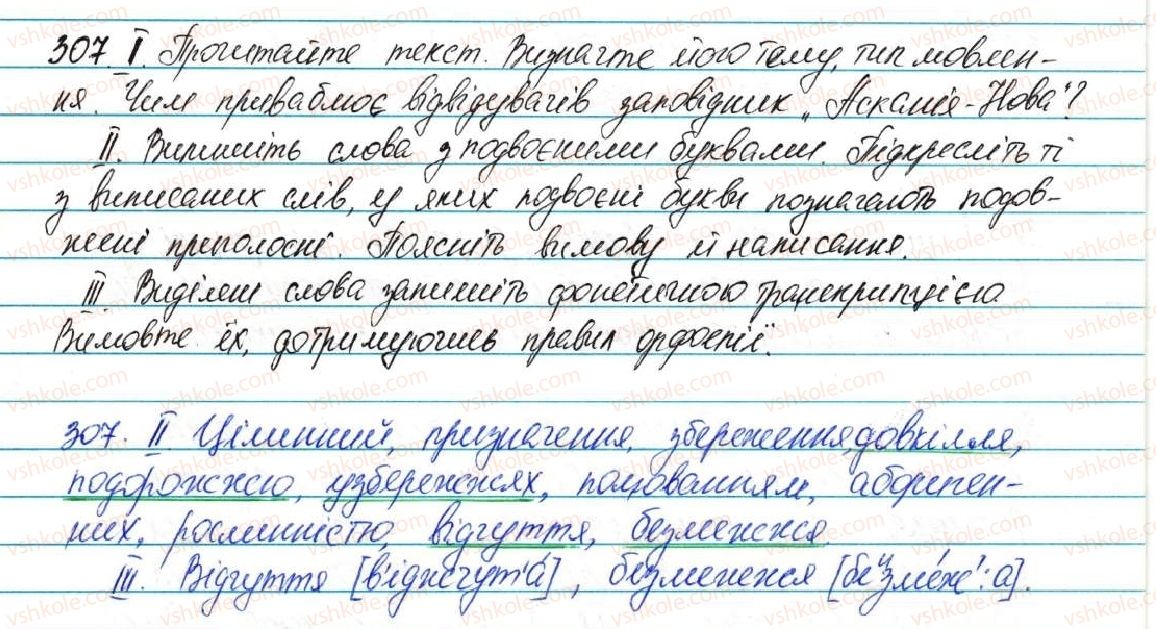 307. I. Прочитайте текст. Визначте його тему, тип мовлен-
ня. Чим приваблює відвідувачів заповідник „Асканія-Нова"?
II. Випишіть слова з подвоєними буквами. Підкресліть ті
з виписаних слів, у яких подвоєні букви позначають подов-
жені приголосні. Поясніть вимову й написання.
III. Виділені слова запишіть фонетичною транскрипцією
Вимовте їх, дотримуючись правил орфоепії.
307. II. Цілинний, призначення, збереження, довкілля,
подорожжю, узбережжях, полюванням, аборигенн-
них, рослинністю, відчуття, безмежжя
III. Відчуття [в'іджчут':а], безмежжя [беизмеж':а].